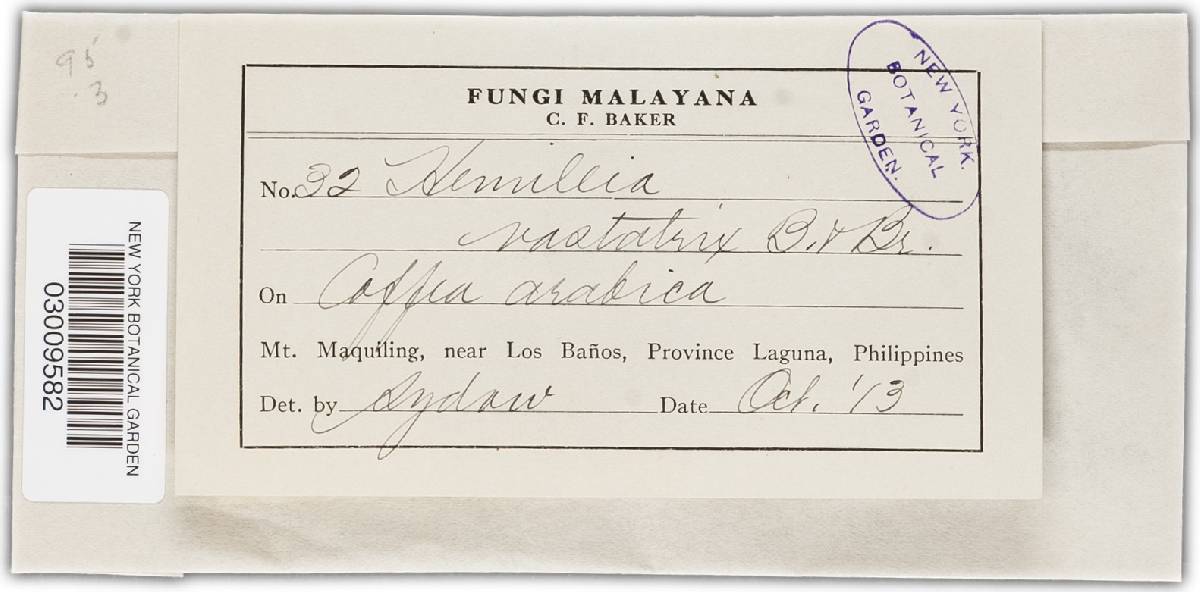 95
.3
FUNGI MALAYANA
C. F. BAKER
NEW YORK
BOTANICAL
GARDEN.
No. 32 Hemileia
vastatrix B. & Br.
On Coffea arabica
Mt. Maquiling, near Los Baños, Province Laguna, Philippines
Det. by Sydow Date Oct. '13
NEW YORK BOTANICAL GARDEN
03009582